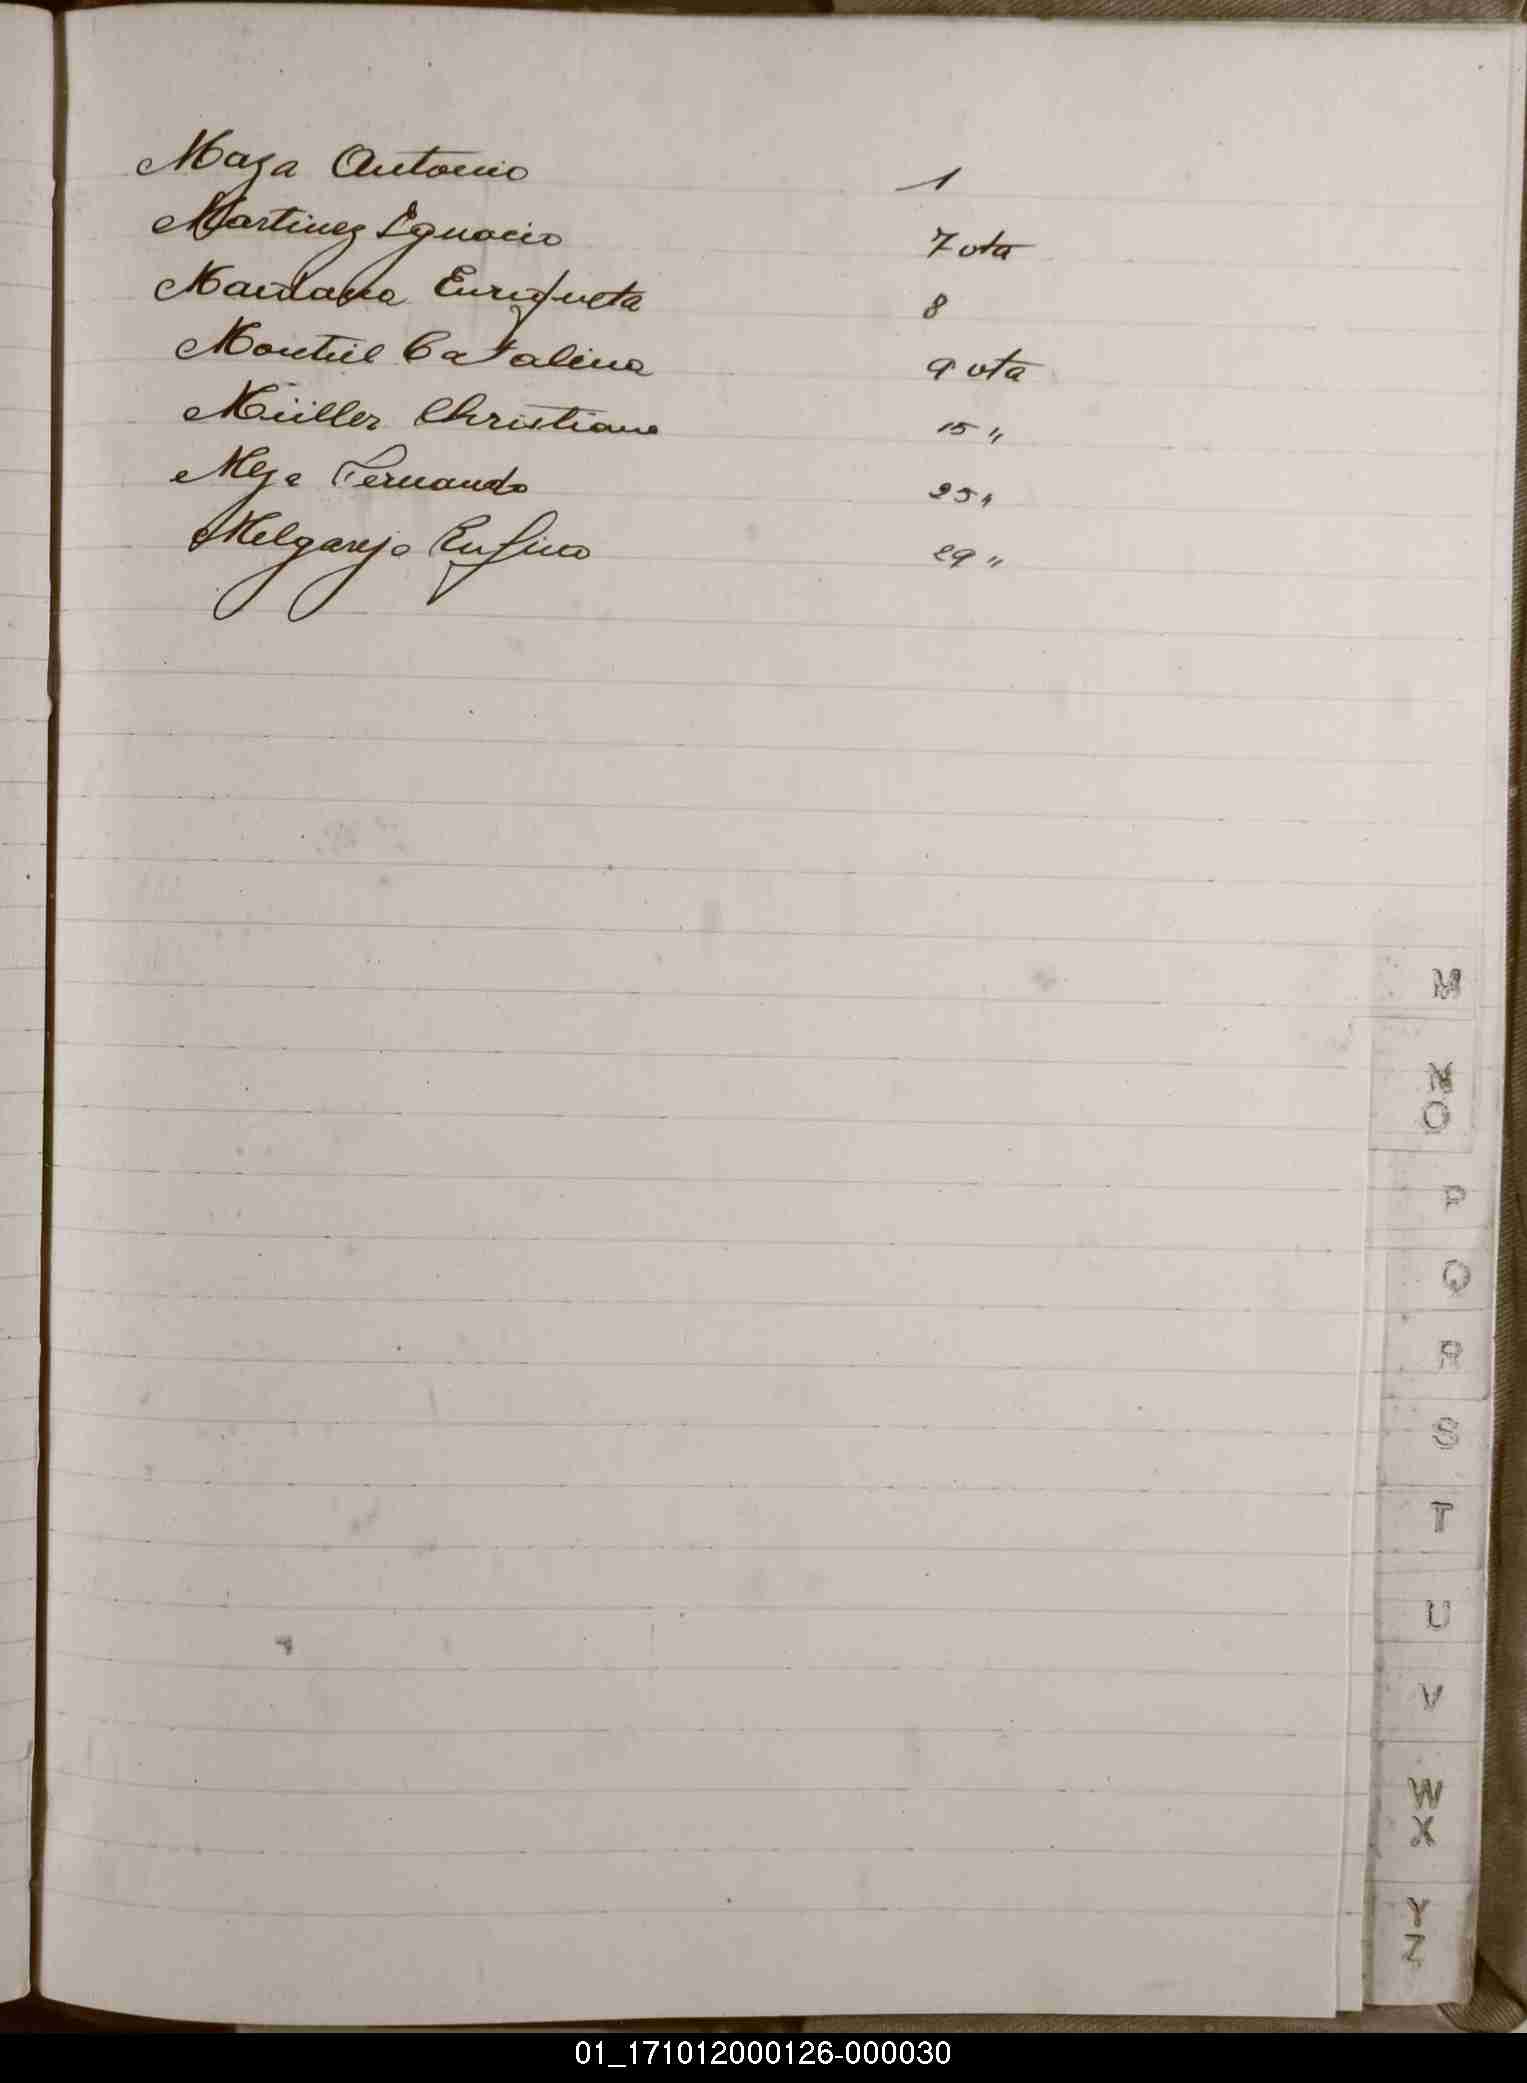 Maza Antonio 1
Martinez Ignacio 7 vta
Maidana Enriqueta 8
Montiel Catalina 9 vta
Müller Christiano 15 "
Meza Fernando 25 "
Melgarejo Rufino 29 "
M
N
O
P
Q
R
S
T
U
V
W
X
Y
Z
01_171012000126-000030